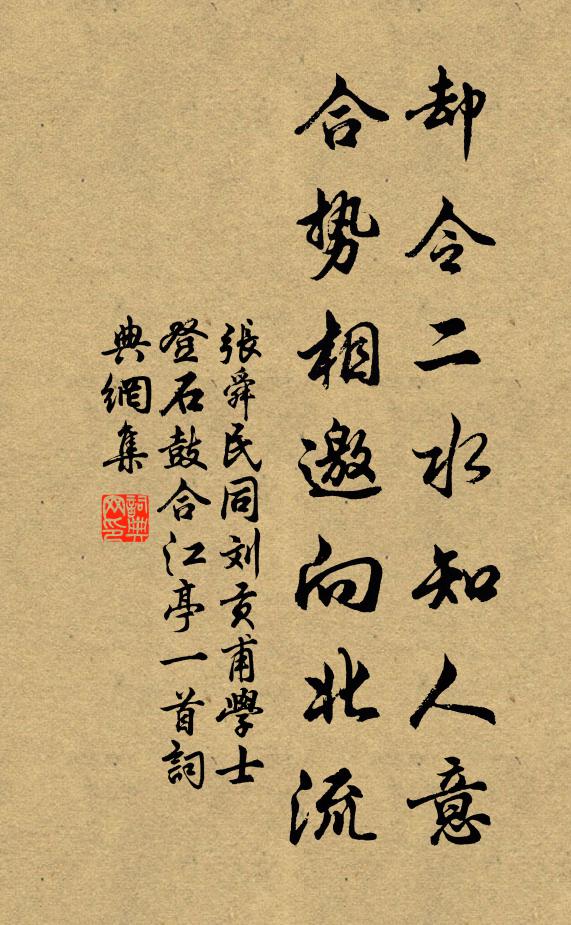 却令二水知人意
合势相邀向北流
張舜民同刘贡甫學士
登石鼓合江亭一首詞
典網集
詞典
网印